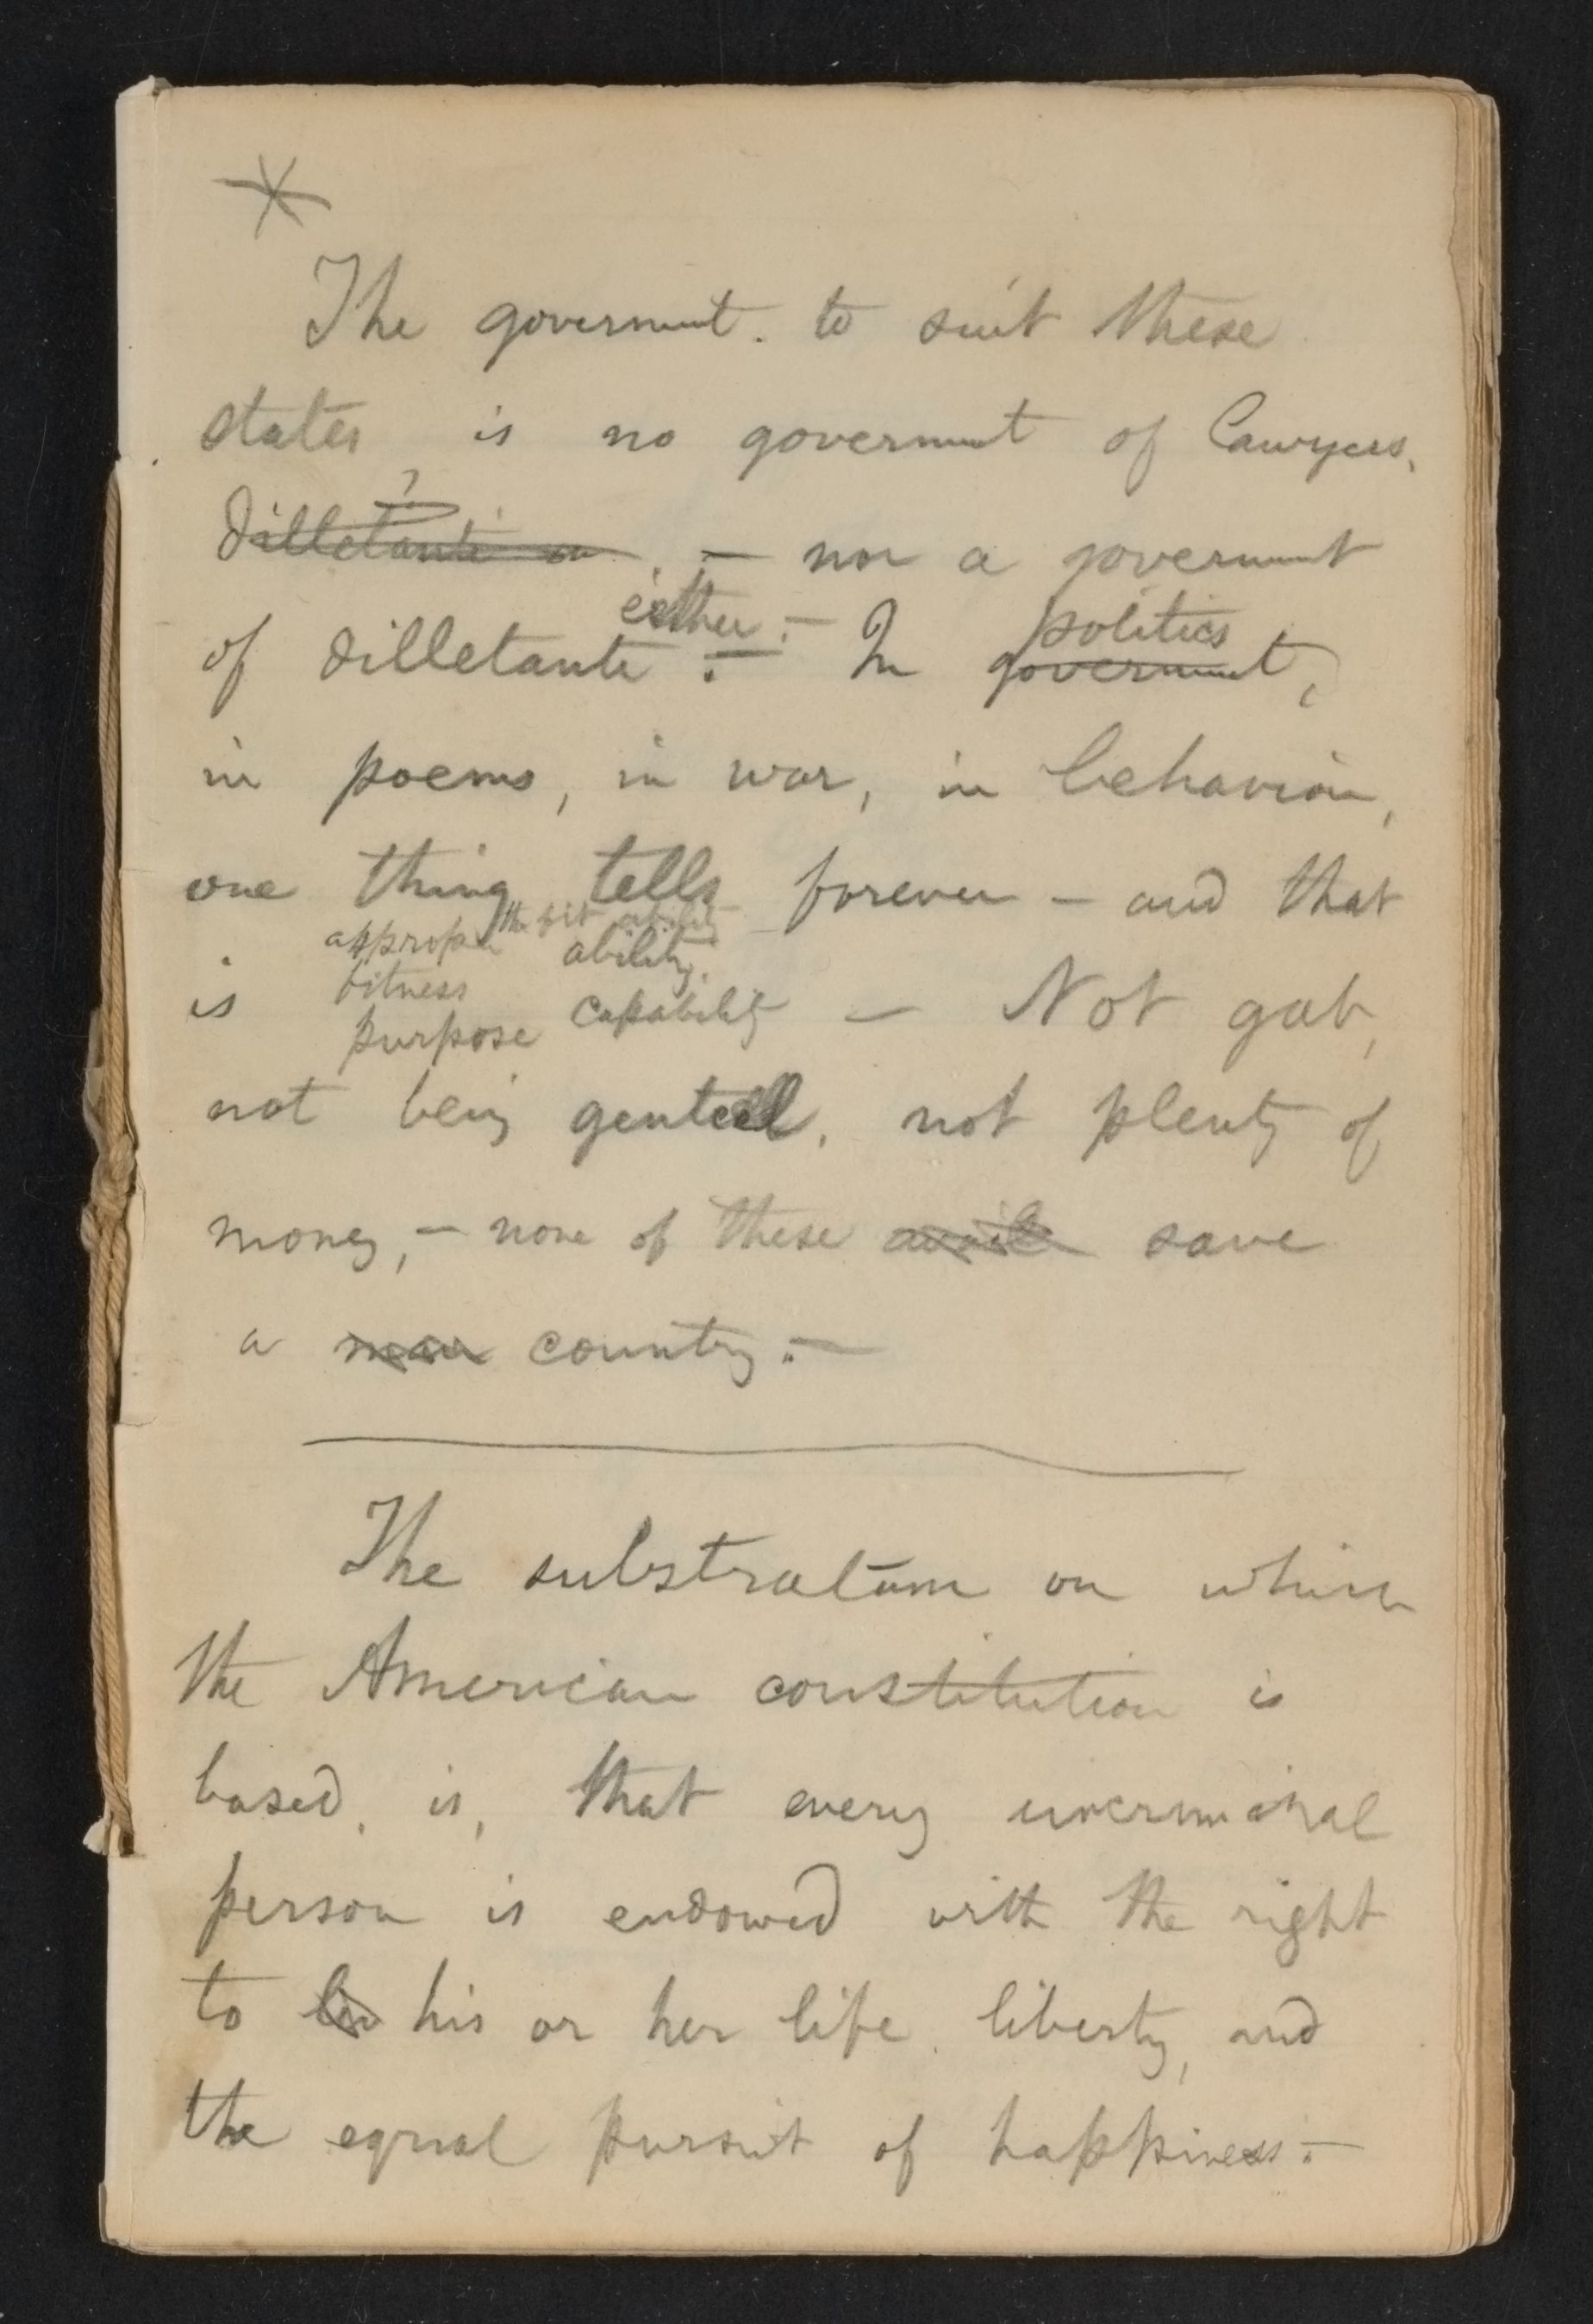 The governmnt. to suit these
states is no governmnt of lawyers,
?
dilletanti or — nor a governmnt
either.— politics
of dilletanti :— In governmnt,
in poems, in war, in behavior,
one thing tells forever — and that
the fit ability
appropri ability
is fitness capability — Not gab,
purpose
not being genteel, not plenty of
money, — none of these avails save
a man country.—
The substratum on which
the American constitution is
based, is, that every uncriminal
person is endowed with the right
to liv his or her life, liberty, and
the equal pursuit of happiness.—